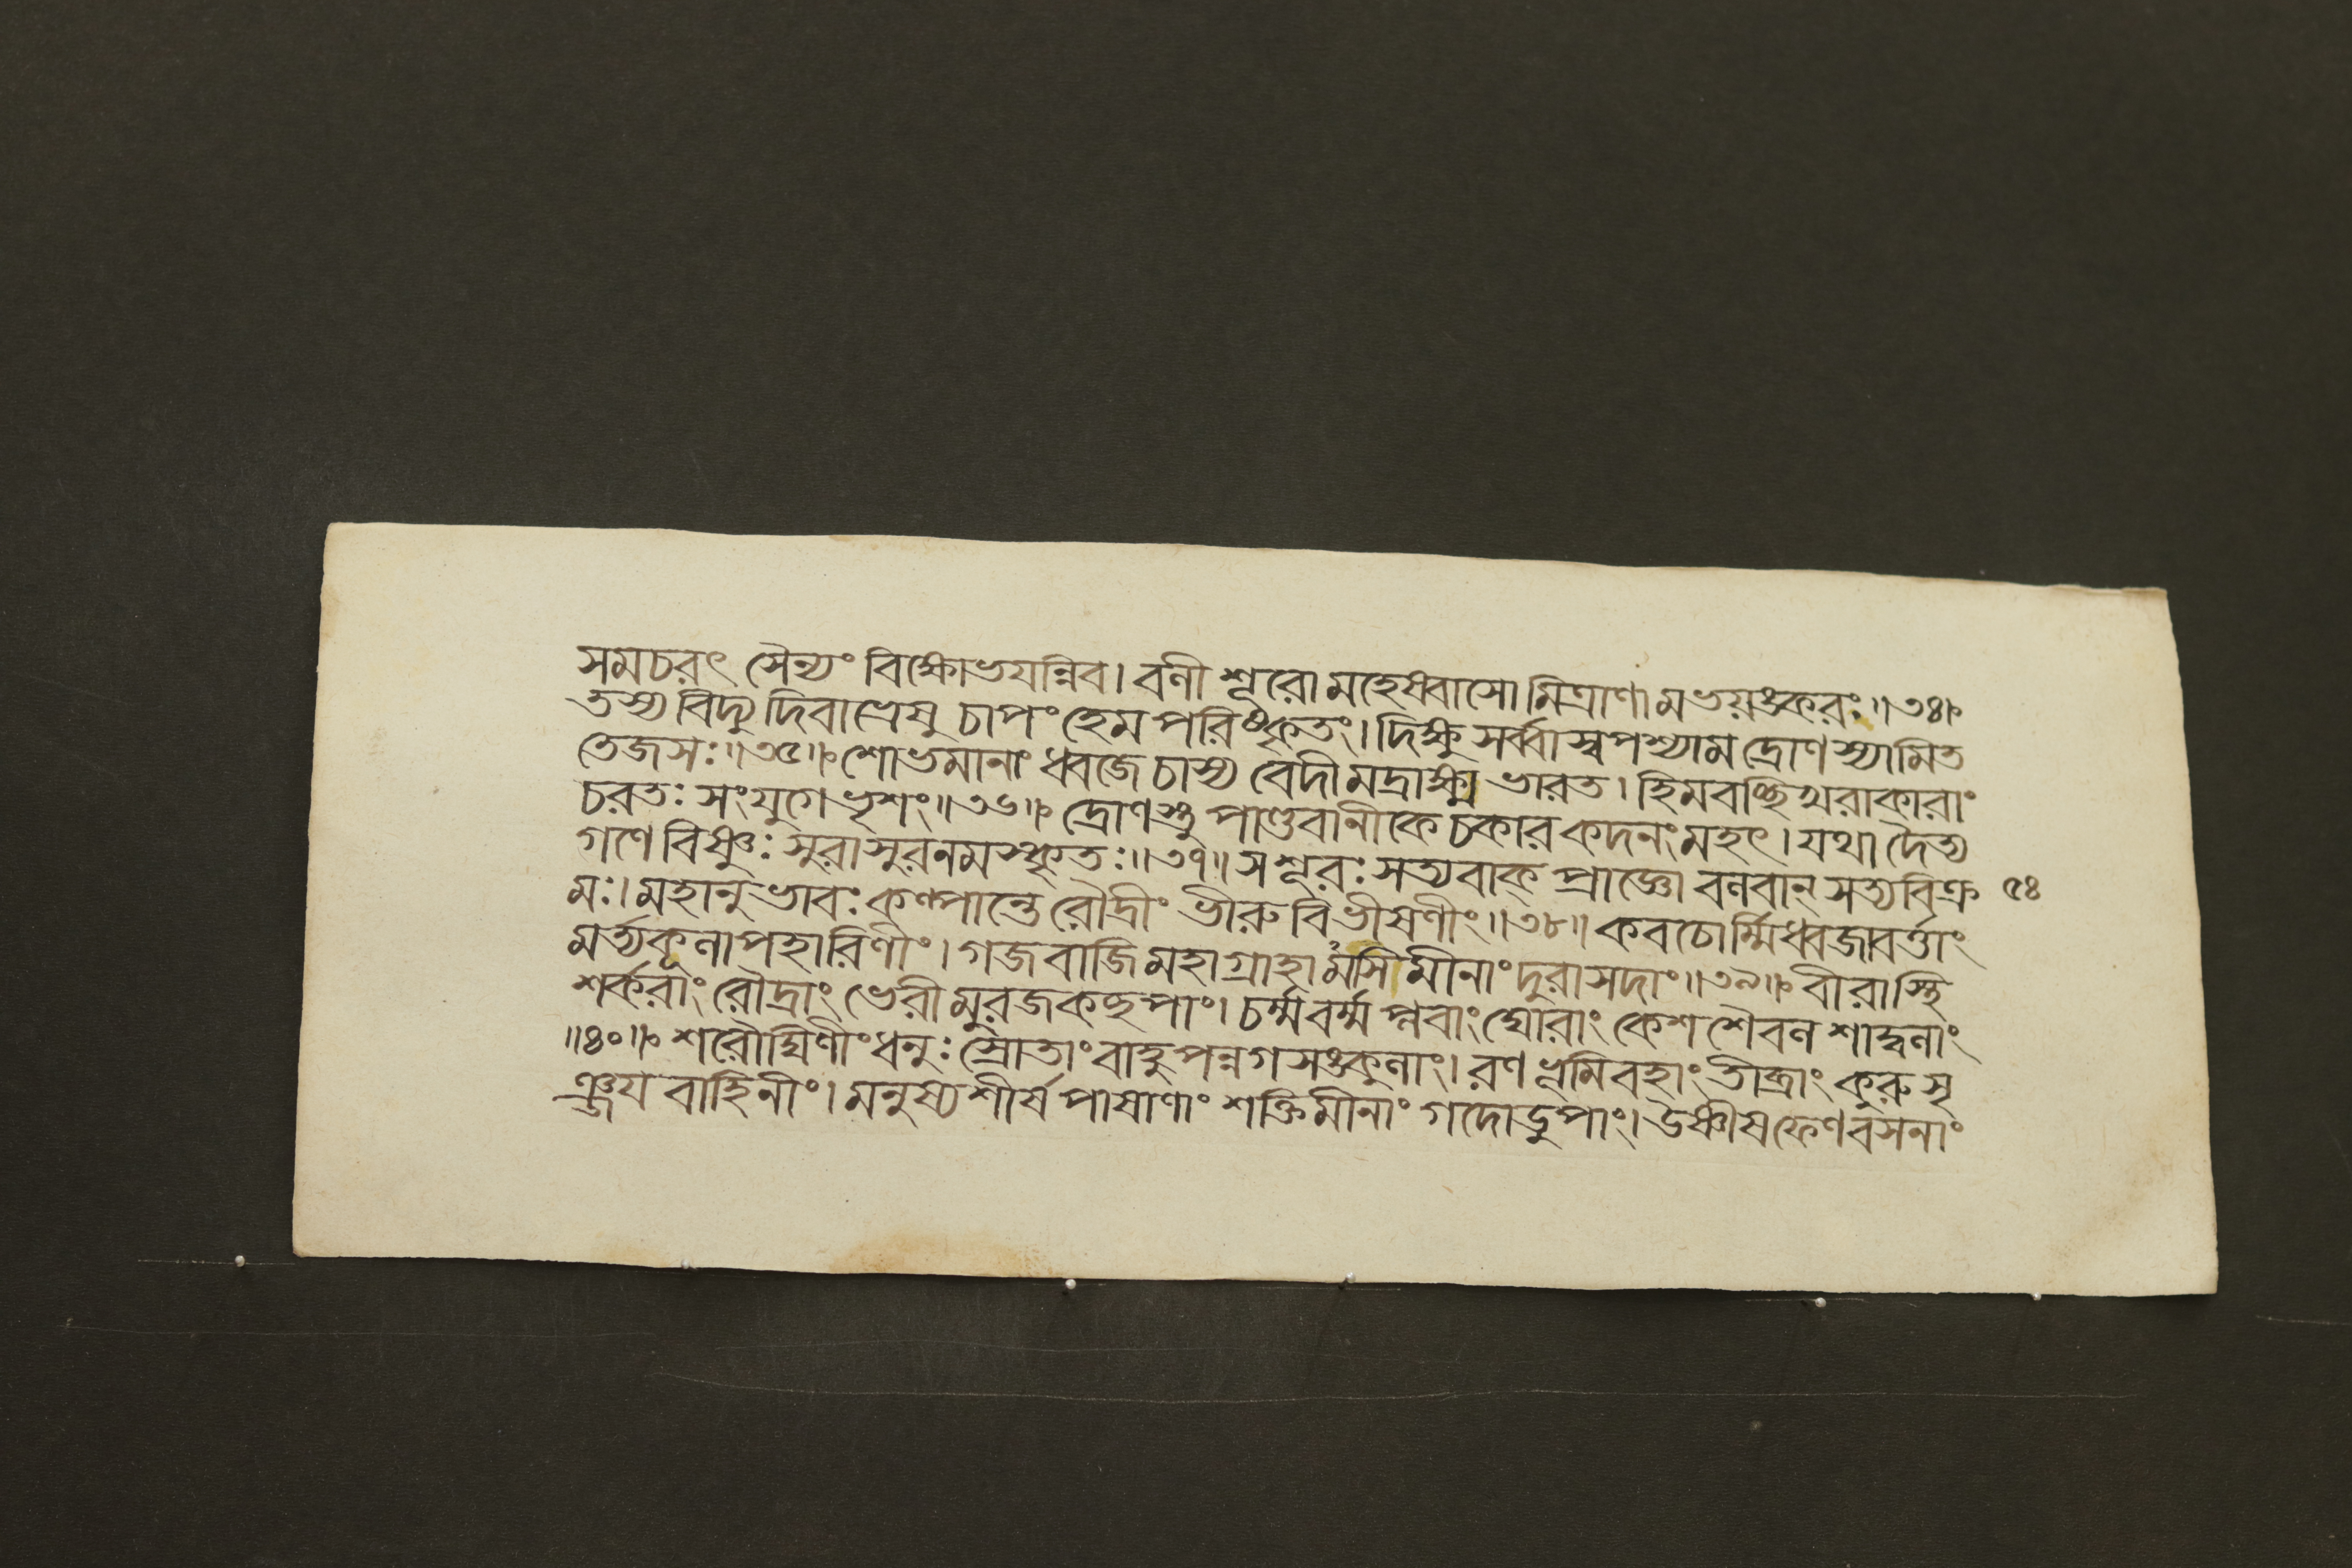 সমচরৎ সৈন্যং বিক্ষোভযন্নিব। বলী শূরো মহেষ্বাসো মিত্রাণামভয়ঙ্করঃ॥৩৪॥
তস্য বিদ্যুদিবাভ্রেষু চাপং হেমপরিষ্কৃতং। দিক্ষু সর্ব্বাস্বপশ্যাম দ্রোণস্যামিত
তেজসঃ॥৩৫॥ শোভমানাং ধ্বজে চাস্য বেদীমদ্রাক্ষ্ম ভারত। হিমবচ্ছিখরাকারাং
চরতঃ সংযুগে ভৃশং॥৩৬॥ দ্রোণস্তু পাণ্ডবানীকে চকার কদনং মহৎ। যথা দৈত্য
গণে বিষ্ণুঃ সুরাসুরনমস্কৃতঃ॥৩৭॥ স শূরঃ সত্যবাক্ প্রাজ্ঞো বলবান্ সত্যবিক্র ৫৪
মঃ। মহানুভাবঃ কল্পান্তে রৌদ্রীং ভীরুবিভীষণীং॥৩৮॥ কবচোর্ম্মিধ্বজাবর্ত্তাং
মর্ত্যকূলাপহারিণীং। গজবাজিমহাগ্রাহামসিমীনাং দুরাসদাং॥৩৯॥ বীরাস্থি
শর্করাং রৌদ্রাং ভেরীমুরজকচ্ছপাং। চর্ম্মবর্ম্মপ্লবাং ঘোরাং কেশশৈবলশাদ্বলাং
॥৪০॥ শরৌঘিণীং ধনুঃস্রোতাং বাহুপন্নগসঙ্কুলাং। রণভূমিবহাং তীব্রাং কুরুসৃ
ঞ্জয়বাহিনীং। মনুষ্যশীর্ষপাষাণাং শক্তিমীনাং গদোডুপাং। উষ্ণীষফেণবসনাং